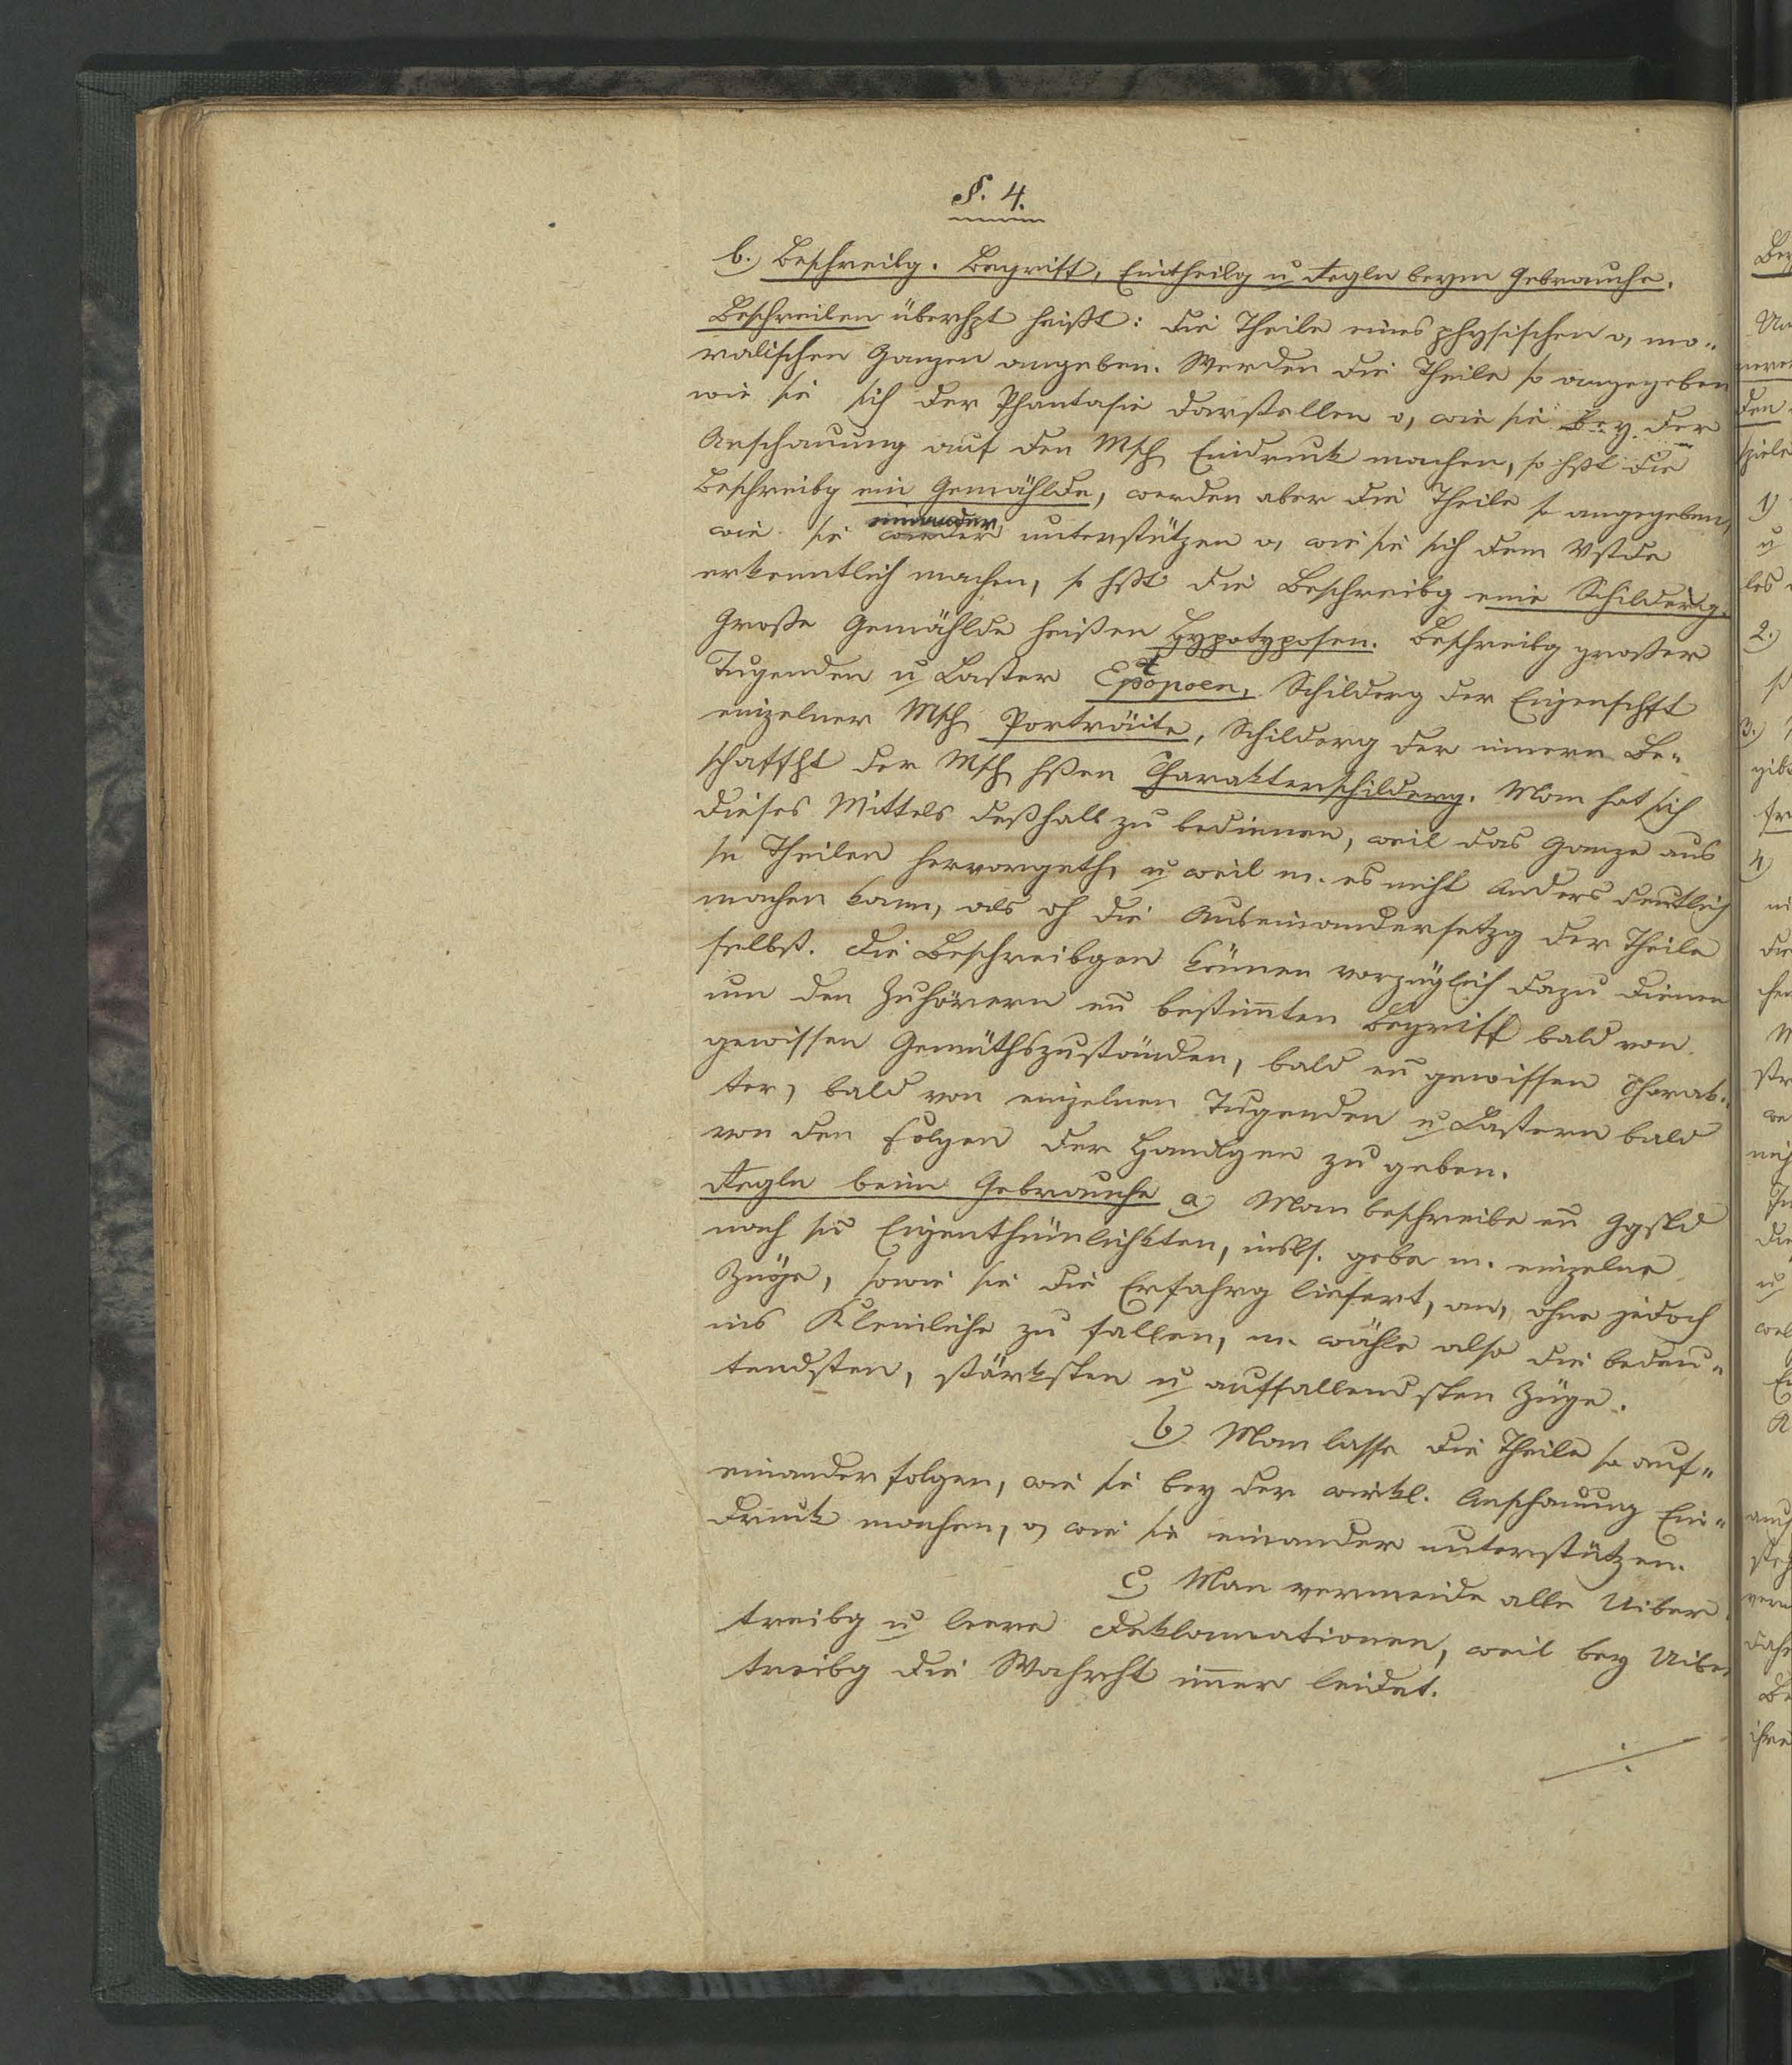 §. 4.
b.) Beschreibg. Begriff, Eintheilg u Regeln beym Gebrauche.
Beschreiben überhpt heißt: die Theile eines physischen o, mo„
ralischen Ganzen angeben. Werden die Theile so angegeben
wie sie sich der Phantasie darstellen o, wie sie bey der
Anschauung auf den Msch Eindruck machen, so hßt die
Beschreibg ein Gemählde, werden aber die Theile so angegeben,
wie sie einander unterstützen o, wie sie sich dem Vstde
erkenntlich machen, so hßt die Beschreibg eine Schilderg.
Große Gemählde heißen Hypotyposen. Beschreibg großer
Tugenden u Laster Schilderg der Eigenschft
einzelner Msch Porträite, Schilderg der innern Be„
schaffht der Msch hßen Charakterschilderg. Man hat sich
dieses Mittels deßhalb zu bedienen, weil das Ganze aus
sn Theilen hervorgeth, u weil m. es nicht anders deutlich
machen kann, als dh die Auseinandersetzg der Theile
selbst. Die Beschreibgen können vorzüglich dazu dienen
um den Zuhörern en bestimten Begriff bald von
gewissen Gemüthszuständen, bald en gewissen Charak„
ter, bald von einzelnen Tugenden u Lastern bald
von den Folgen der Handlgen zu geben.
Regeln beim Gebrauche a) Man beschreibe en Ggstd
nach sn Eigenthümlichkten, insbs. gebe m. einzelne
Züge, sowie sie die Erfahrg liefert, an, ohne jedoch
ins Kleinliche zu fallen, m. wähle also die bedeu„
tendsten, stärksten u auffallendsten Züge.
b) Man lasse die Theile so auf„
einander folgen, wie sie bey der wirkl. Anschauung Ein„
druck machen, o, wie sie einander unterstützen.
c) Man vermeide alle Uiber
treibg u leere Deklamationen, weil bey Uiber
treibg die Wahrht imer leidet.